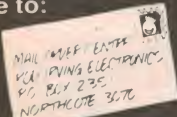 e to:
MAIL ORDER CENTRE
ROD IRVING ELECTRONICS
P.O. BOX 235
NORTHCOTE 3070